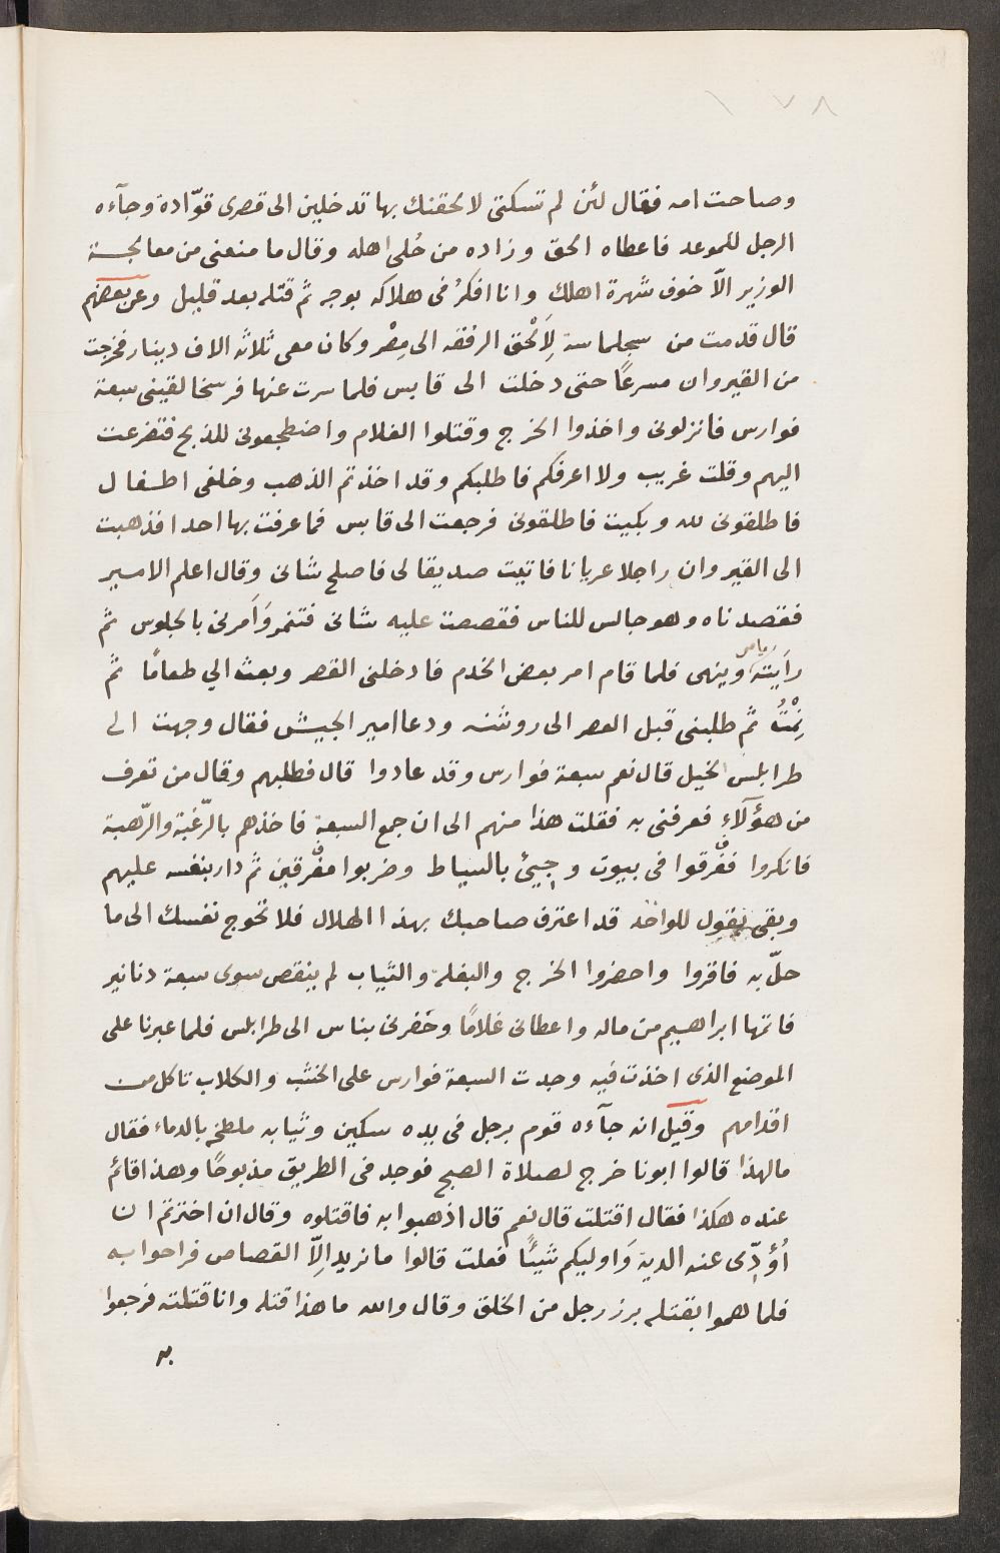 ١٧٨
وصاحت امه فقال لئن لم تسكتى لالحقنك بها تدخلين الى قصرى قوّادة وجآءه
الرجل للموعد فاعطاه الحق وزاده من حُلى اهله وقال ما منعنى من معالجة
الوزير الّا خوف شهرة اهلك وانا افكرُ فى هلاكه بوجه ثم قتله بعد قليل وعن بعضهم
قال قدمت من سجلماسة لِاَلْحق الرفقه الى مِصْر وكان معى ثلاثه الاف دينار فخرجت
من القيروان مسرعًا حتى دخلت الى قابس فلما سرت عنها فرسخا لقينى سبعة
فوارس فانزلونى واخذوا الخرج وقتلوا الغلام واضطجعونى للذبح فتضرعت
اليهم وقلت غريب ولا اعرفكم فاطلبكم وقد اخذتم الذهب وخلفى اطفال
فاطلقونى لله وبكيت فاطلقونى فرجعت الى قابس فما عرفت بها احدا فذهبت
الى القيروان راجلا عريانا فاتيت صديقا لى فاصلح شانى وقال اعلم الامير
فقصدناه وهو جالس للناس فقصصت عليه شانى فتنمر وَاَمرنى بالجلوس ثم
راَيته يامر وينهى فلما قام امر بعض الخدم فادخلنى القصر وبعث الي طعامًا ثم
نِمْتُ ثم طلبنى قبل العصر الى روشنه ودعا امير الجيش فقال وجهت الى
طرابلس الخيل قال نعم سبعة فوارس وقد عادوا قال فطلبهم وقال من تعرف
من هؤلآءِ فعرفنى به فقلت هذا منهم الى ان جمع السبعة فاخذهم بالرّغبة والرّهبة
فانكروا ففُرقوا فى بيوت وجيئ بالسياط وضربوا مفُرقين ثم دار بنفسه عليهم
وبقى يقول للواحد قد اعترف صاحبك بهذا الهلال فلا تحوج نفسك الى ما
حلّ به فاقروا واحضروا الخرج والبغلة والثياب لم ينقص سوى سبعة دنانير
فاتمها ابراهيم من ماله واعطانى غلامًا وخفرنى بناس الى طرابلس فلما عبرنا على
الموضع الذى اخذت فيه وجدت السبعة فوارس على الخشب والكلاب تاكل من
اقدامهم وقيل انه جآءه قوم برجل فى يده سكين وثيابه ملطخه بالدماء فقال
ما لهذا قالوا ابونا خرج لصلاة الصبح فوجد فى الطريق مذبوحًا وهذا قائم
عنده هكذا فقال اقتلت قال نعم قال اذهبوا به فاقتلوه وقال ان اخترتم ان
اُؤدّى عنه الدية وَاوليكم شيئًا فعلت قالوا ما نريد اِلّا القصاص فراحوا به
فلما هموا بقتله برز رجل من الخلق وقال والله ما هذا قتله وانا قتلته فرجعوا
به